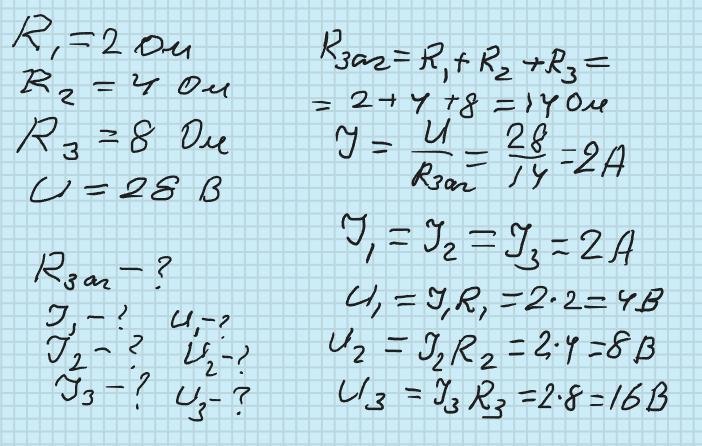 R₁ = 2 Ом
R₂ = 4 Ом
R₃ = 8 Ом
U = 28 В
Rзаг – ?
I₁ – ? U₁ – ?
I₂ – ? U₂ – ?
I₃ – ? U₃ – ?
Rзаг = R₁ + R₂ + R₃ =
= 2 + 4 + 8 = 14 Ом
I = U / Rзаг = 28 / 14 = 2 А
I₁ = I₂ = I₃ = 2 А
U₁ = I₁R₁ = 2·2 = 4 В
U₂ = I₂R₂ = 2·4 = 8 В
U₃ = I₃R₃ = 2·8 = 16 В